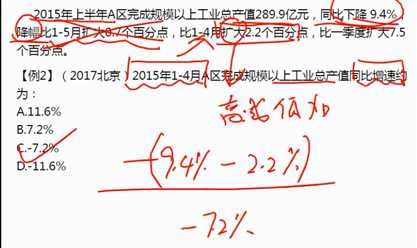 2015年上半年A区完成规模以上工业总产值289.9亿元，同比下降 9.4%，
降幅比1-5月扩大0.7个百分点，比1-4月扩大2.2个百分点，比一季度扩大7.5
个百分点。
【例2】（2017北京）2015年1-4月A区完成规模以上工业总产值同比增速约
为：
A.11.6%
B.7.2%
C.-7.2%
D.-11.6%
-(9.4% - 2.2%)
-7.2%